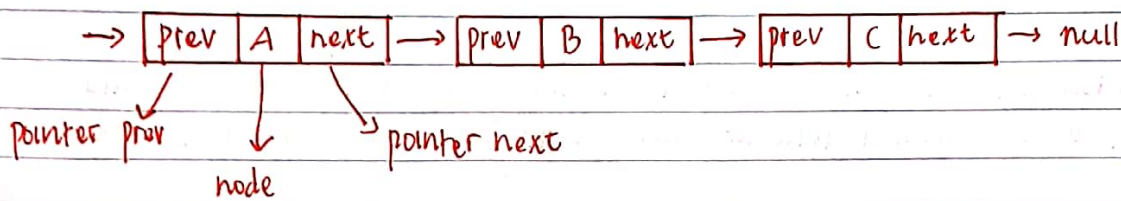 → prev A next → prev B next → prev C next → null
pointer prev
pointer next
node